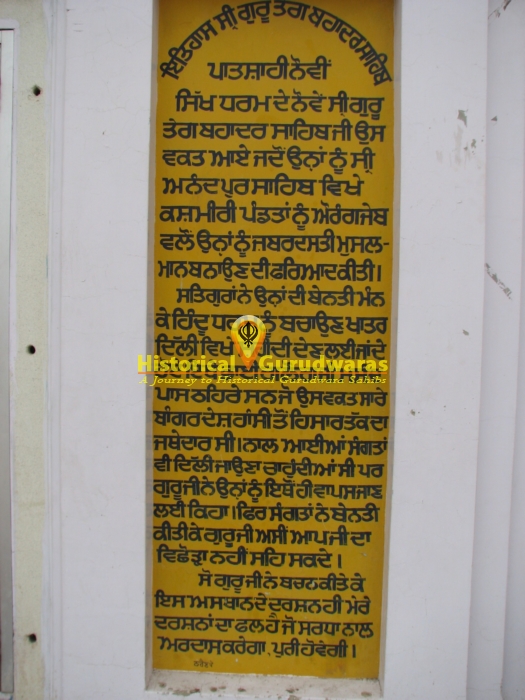 ਇਤਿਹਾਸ ਸ੍ਰੀ ਗੁਰੂ ਤੇਗ ਬਹਾਦਰ ਸਾਹਿਬ
ਪਾਤਸ਼ਾਹੀ ਨੌਵੀਂ
ਸਿੱਖ ਧਰਮ ਦੇ ਨੌਵੇਂ ਸ੍ਰੀ ਗੁਰੂ
ਤੇਗ ਬਹਾਦਰ ਸਾਹਿਬ ਜੀ ਉਸ
ਵਕਤ ਆਏ ਜਦੋਂ ਉਨ੍ਹਾਂ ਨੂੰ ਸ੍ਰੀ
ਅਨੰਦਪੁਰ ਸਾਹਿਬ ਵਿਖੇ
ਕਸ਼ਮੀਰੀ ਪੰਡਤਾਂ ਨੂੰ ਔਰੰਗਜੇਬ
ਵਲੋਂ ਉਨ੍ਹਾਂ ਨੂੰ ਜਬਰਦਸਤੀ ਮੁਸਲ-
ਮਾਨ ਬਨਾਉਣ ਦੀ ਫਰਿਆਦ ਕੀਤੀ।
ਸਤਿਗੁਰਾਂ ਨੇ ਉਨ੍ਹਾਂ ਦੀ ਬੇਨਤੀ ਮੰਨ
ਕੇ ਹਿੰਦੂ ਨੂੰ ਬਚਾਉਣ ਖਾਤਰ
ਦਿੱਲੀ ਵਿਖੇ ਦੇਣ ਲਈ ਜਾਂਦੇ
Historical Gurudwaras
A Journey to Historical Gurudwara Sahibs
ਪਾਸ ਠਹਿਰੇ ਸਨ ਜੋ ਉਸ ਵਕਤ ਸਾਰੇ
ਬਾਂਗਰ ਦੇਸ਼ ਹਾਂਸੀ ਤੋਂ ਹਿਸਾਰ ਤੱਕ ਦਾ
ਜਥੇਦਾਰ ਸੀ। ਨਾਲ ਆਈਆਂ ਸੰਗਤਾਂ
ਵੀ ਦਿੱਲੀ ਜਾਉਣਾ ਚਾਹੁੰਦੀਆਂ ਸੀ ਪਰ
ਗੁਰੂ ਜੀ ਨੇ ਉਨ੍ਹਾਂ ਨੂੰ ਇਥੋਂ ਹੀ ਵਾਪਸ ਜਾਣ
ਲਈ ਕਿਹਾ। ਫਿਰ ਸੰਗਤਾਂ ਨੇ ਬੇਨਤੀ
ਕੀਤੀ ਕੇ ਗੁਰੂ ਜੀ ਅਸੀਂ ਆਪ ਜੀ ਦਾ
ਵਿਛੋੜਾ ਨਹੀਂ ਸਹਿ ਸਕਦੇ।
ਸੋ ਗੁਰੂ ਜੀ ਨੇ ਬਚਨ ਕੀਤੇ ਕੇ
ਇਸ ਅਸਥਾਨ ਦੇ ਦਰਸ਼ਨ ਹੀ ਮੇਰੇ
ਦਰਸ਼ਨਾਂ ਦਾ ਫਲ ਹੈ ਜੋ ਸਰਧਾ ਨਾਲ
ਅਰਦਾਸ ਕਰੇਗਾ, ਪੁਰੀ ਹੋਵੇਗੀ।